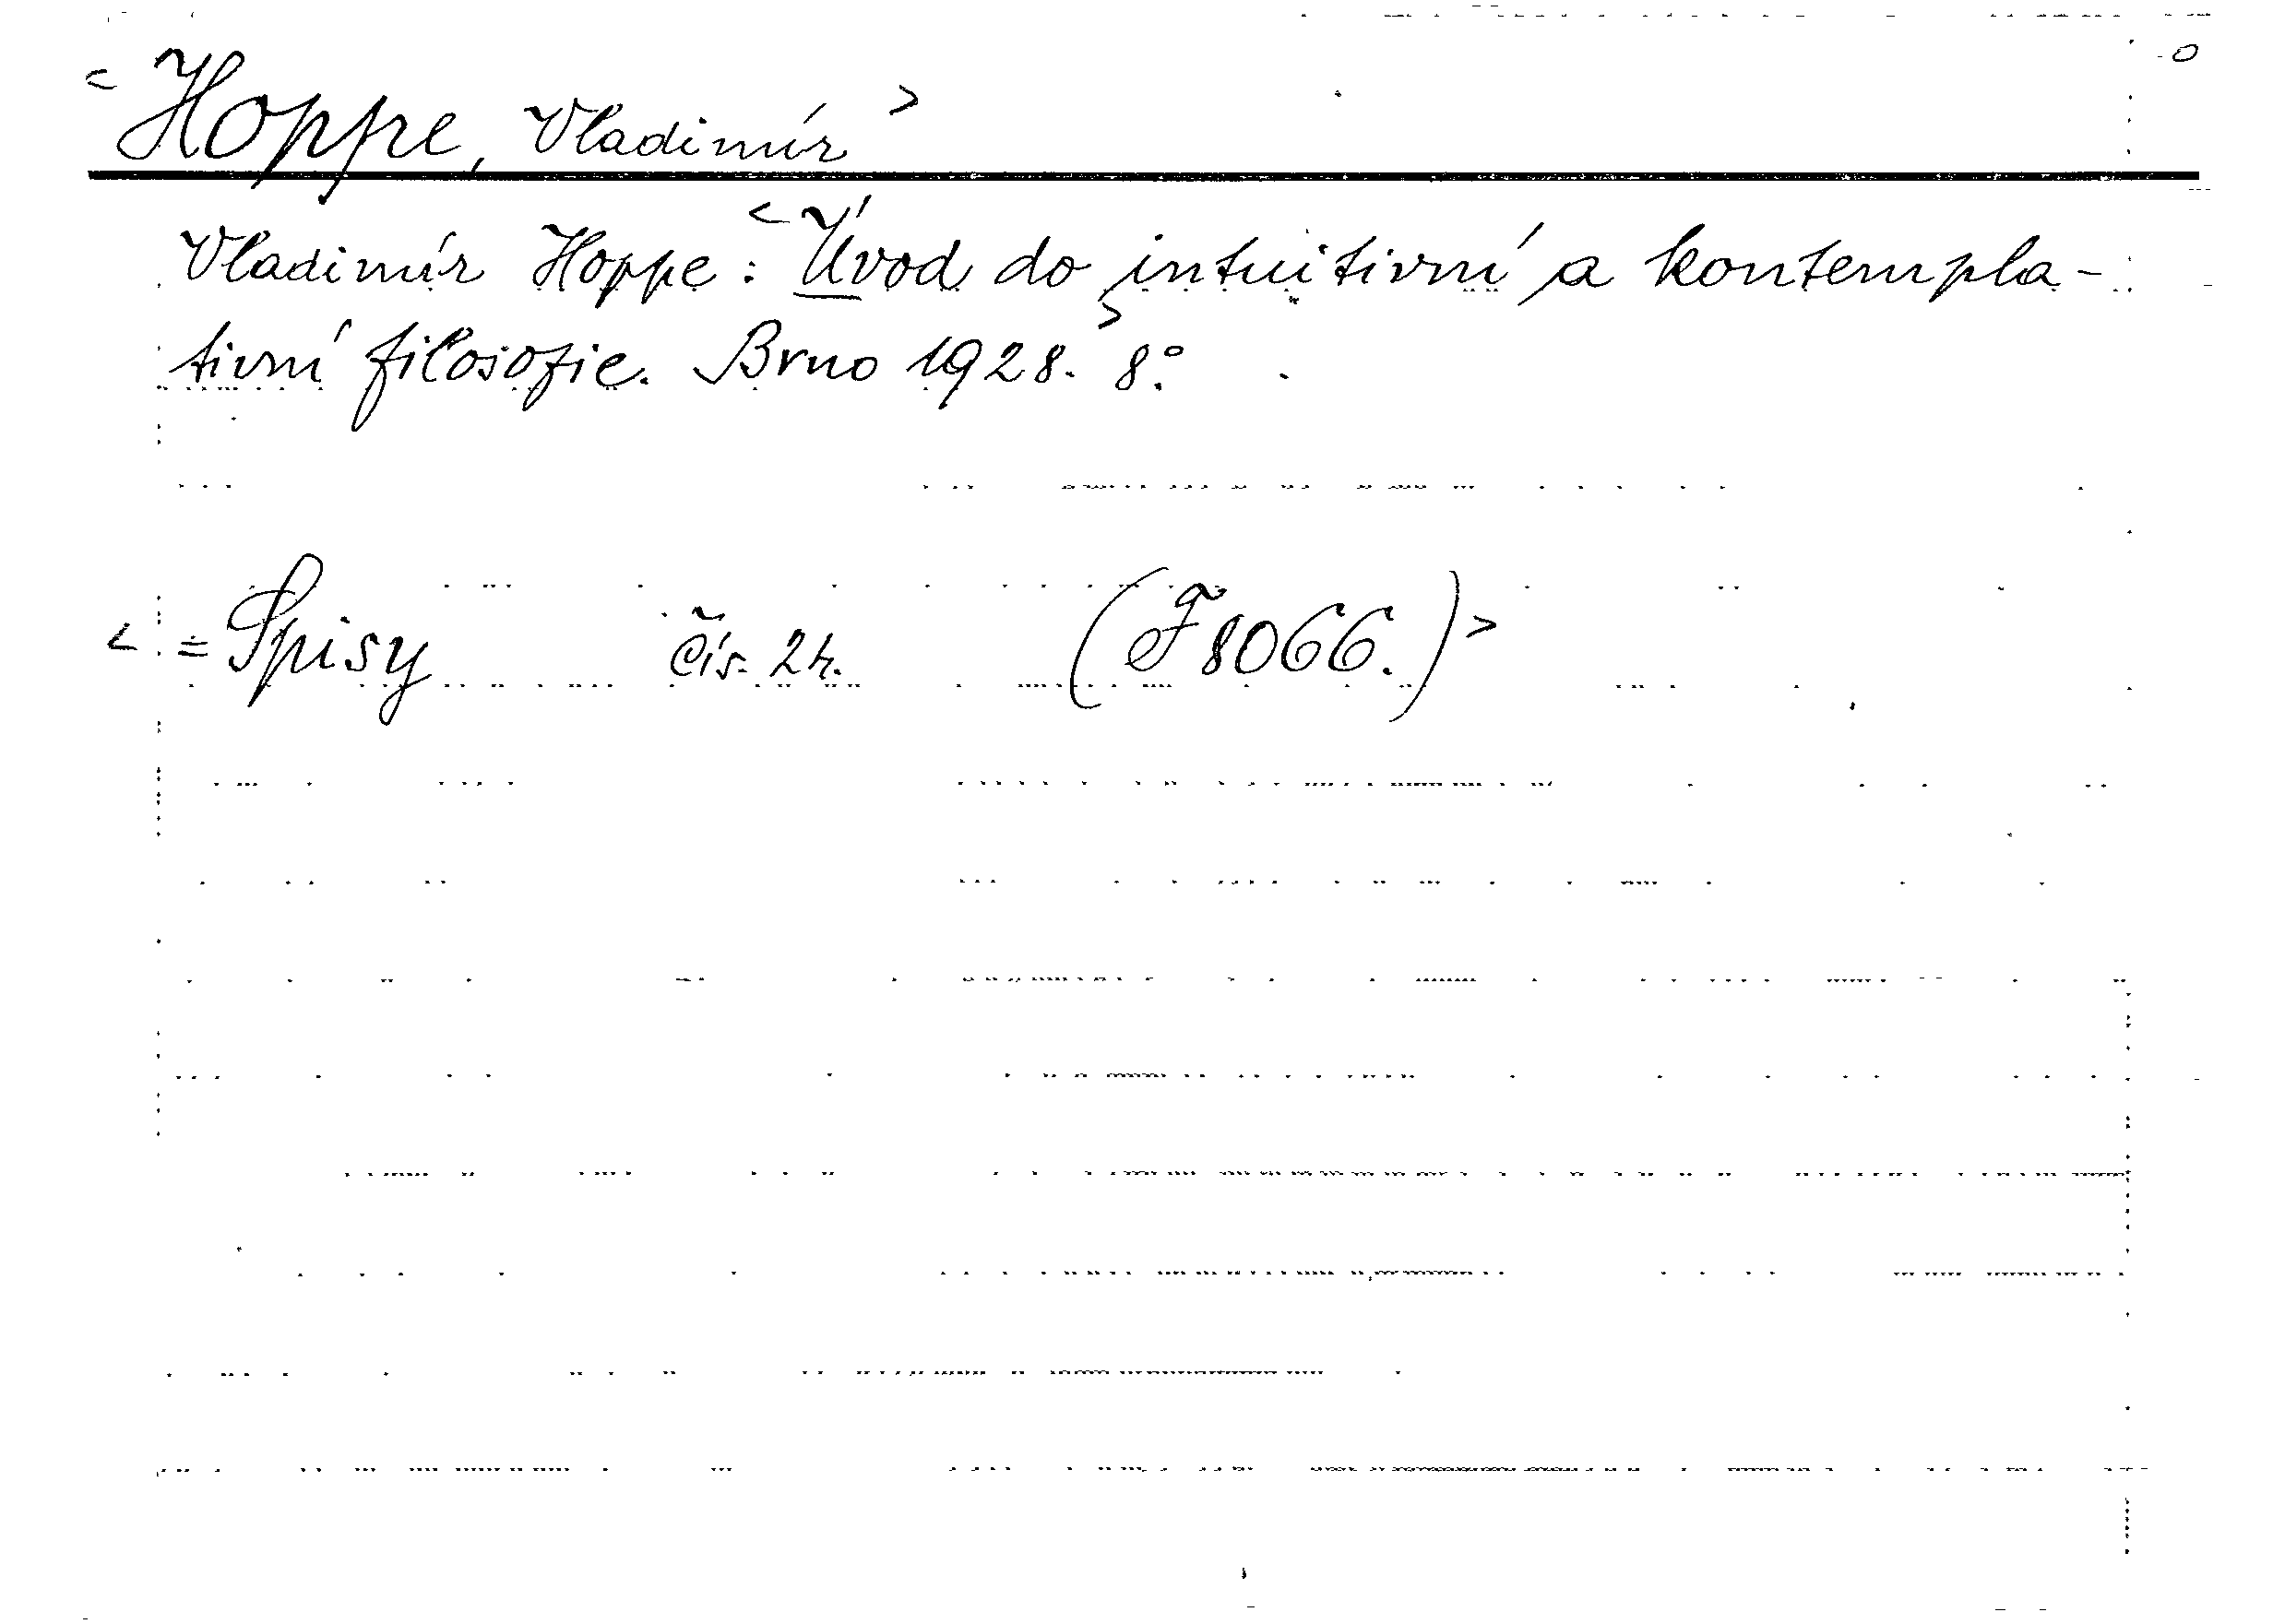 < Hoppe, Vladimír >
Vladimír Hoppe: < Úvod do intuitivní a kontempla-
tivní filosofie. Brno 1928. > 8°.
< = Spisy čís. 24. (F 8066.) >